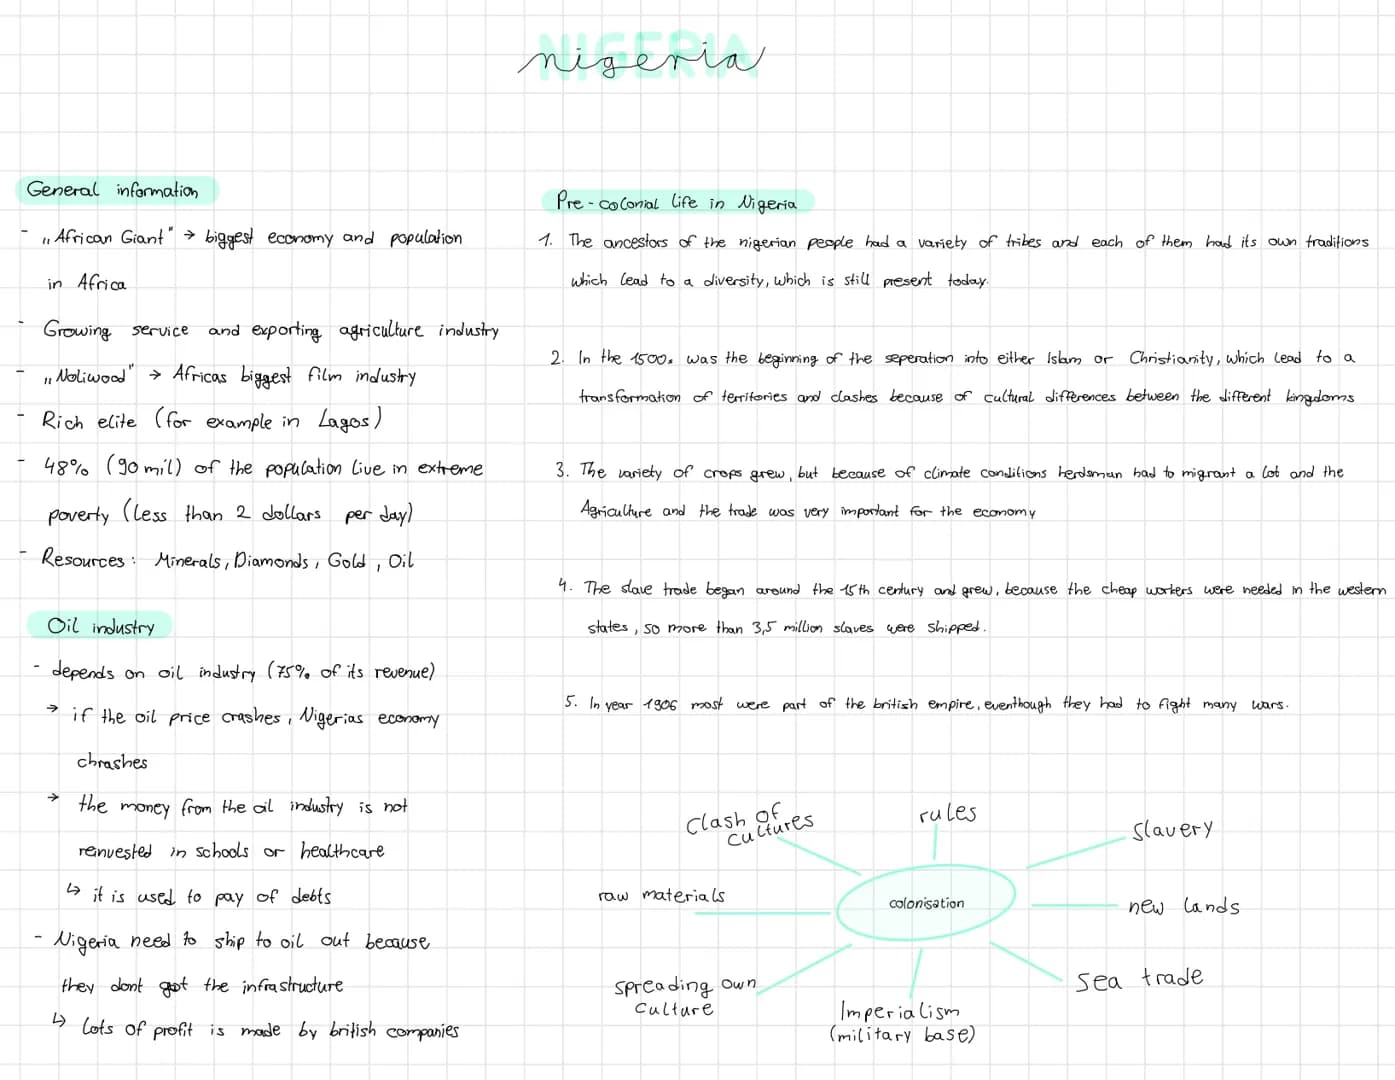 NIGERIA
nigeria
General information
- „African Giant" → biggest economy and population
in Africa
- Growing service and exporting agriculture industry
- „Noliwood" → Africas biggest film industry
- Rich elite (for example in Lagos)
- 48% (90 mil) of the population live in extreme
poverty (less than 2 dollars per day)
- Resources: Minerals, Diamonds, Gold, Oil
Oil industry
- depends on oil industry (75% of its revenue)
→ if the oil price crashes, Nigerias economy
chrashes
→ the money from the oil industry is not
reinvested in schools or healthcare
↳ it is used to pay of debts
- Nigeria need to ship to oil out because
they dont got the infrastructure
↳ lots of profit is made by british companies
Pre-colonial life in Nigeria
1. The ancestors of the nigerian people had a variety of tribes and each of them had its own traditions
which lead to a diversity, which is still present today.
2. In the 1500s was the beginning of the seperation into either Islam or Christianity, which lead to a
transformation of territories and clashes because of cultural differences between the different kingdoms
3. The variety of crops grew, but because of climate conditions herdsman had to migrant a lot and the
Agriculture and the trade was very important for the economy
4. The slave trade began around the 15th century and grew, because the cheap workers were needed in the western
states, so more than 3,5 million slaves were shipped.
5. In year 1906 most were part of the british empire, eventhough they had to fight many wars.
Clash of
cultures
rules
slavery
raw materials
colonisation
new lands
spreading own
culture
Imperialism
(military base)
sea trade